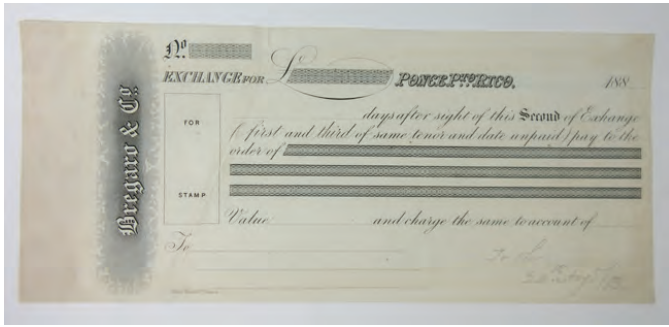 Bregaro & Co.
No.
EXCHANGE FOR £ PONCE, Pto. RICO. 188
FOR
STAMP
days after sight of this Second of Exchange
( first and third of same tenor and date unpaid ) pay to the
order of
Value and charge the same to account of
To